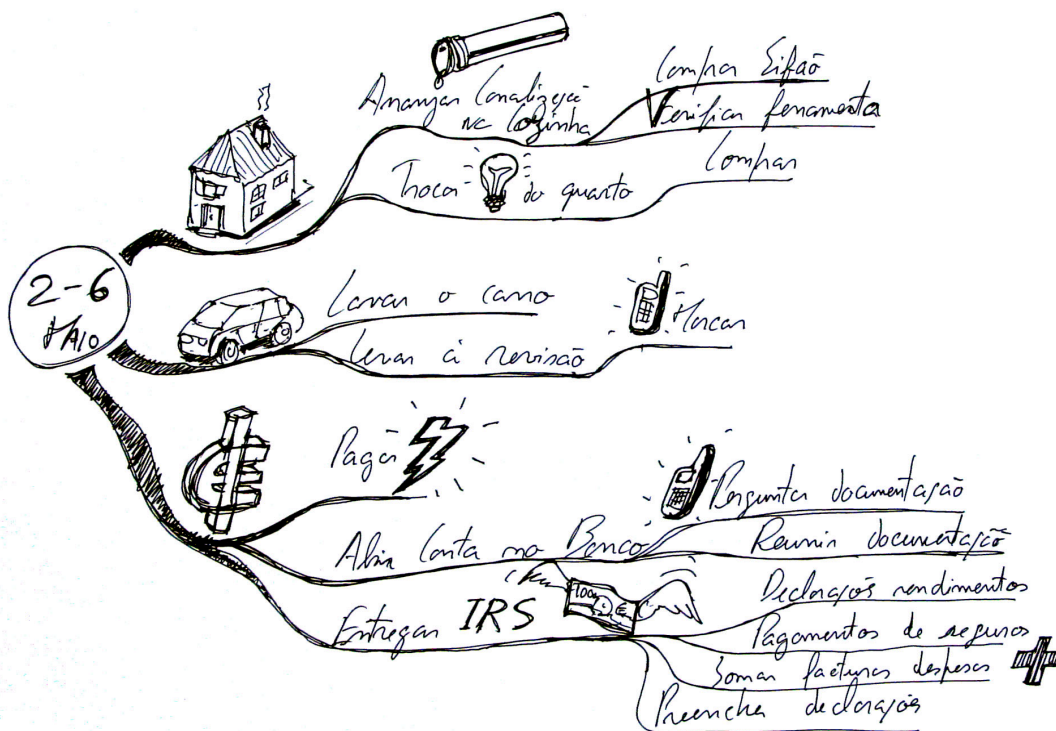 2-6
MAIO
Arranjar Canalização
na Cozinha
Comprar Sifão
Verificar ferramenta
Trocar do quarto
Comprar
Lavar o carro
Levar à revisão
Marcar
Pagar
Abrir Conta no Banco
Perguntar documentação
Reunir documentação
Entregar IRS
100
€
Declarações rendimentos
Pagamentos de seguros
Somar facturas despesas
Preencher declarações